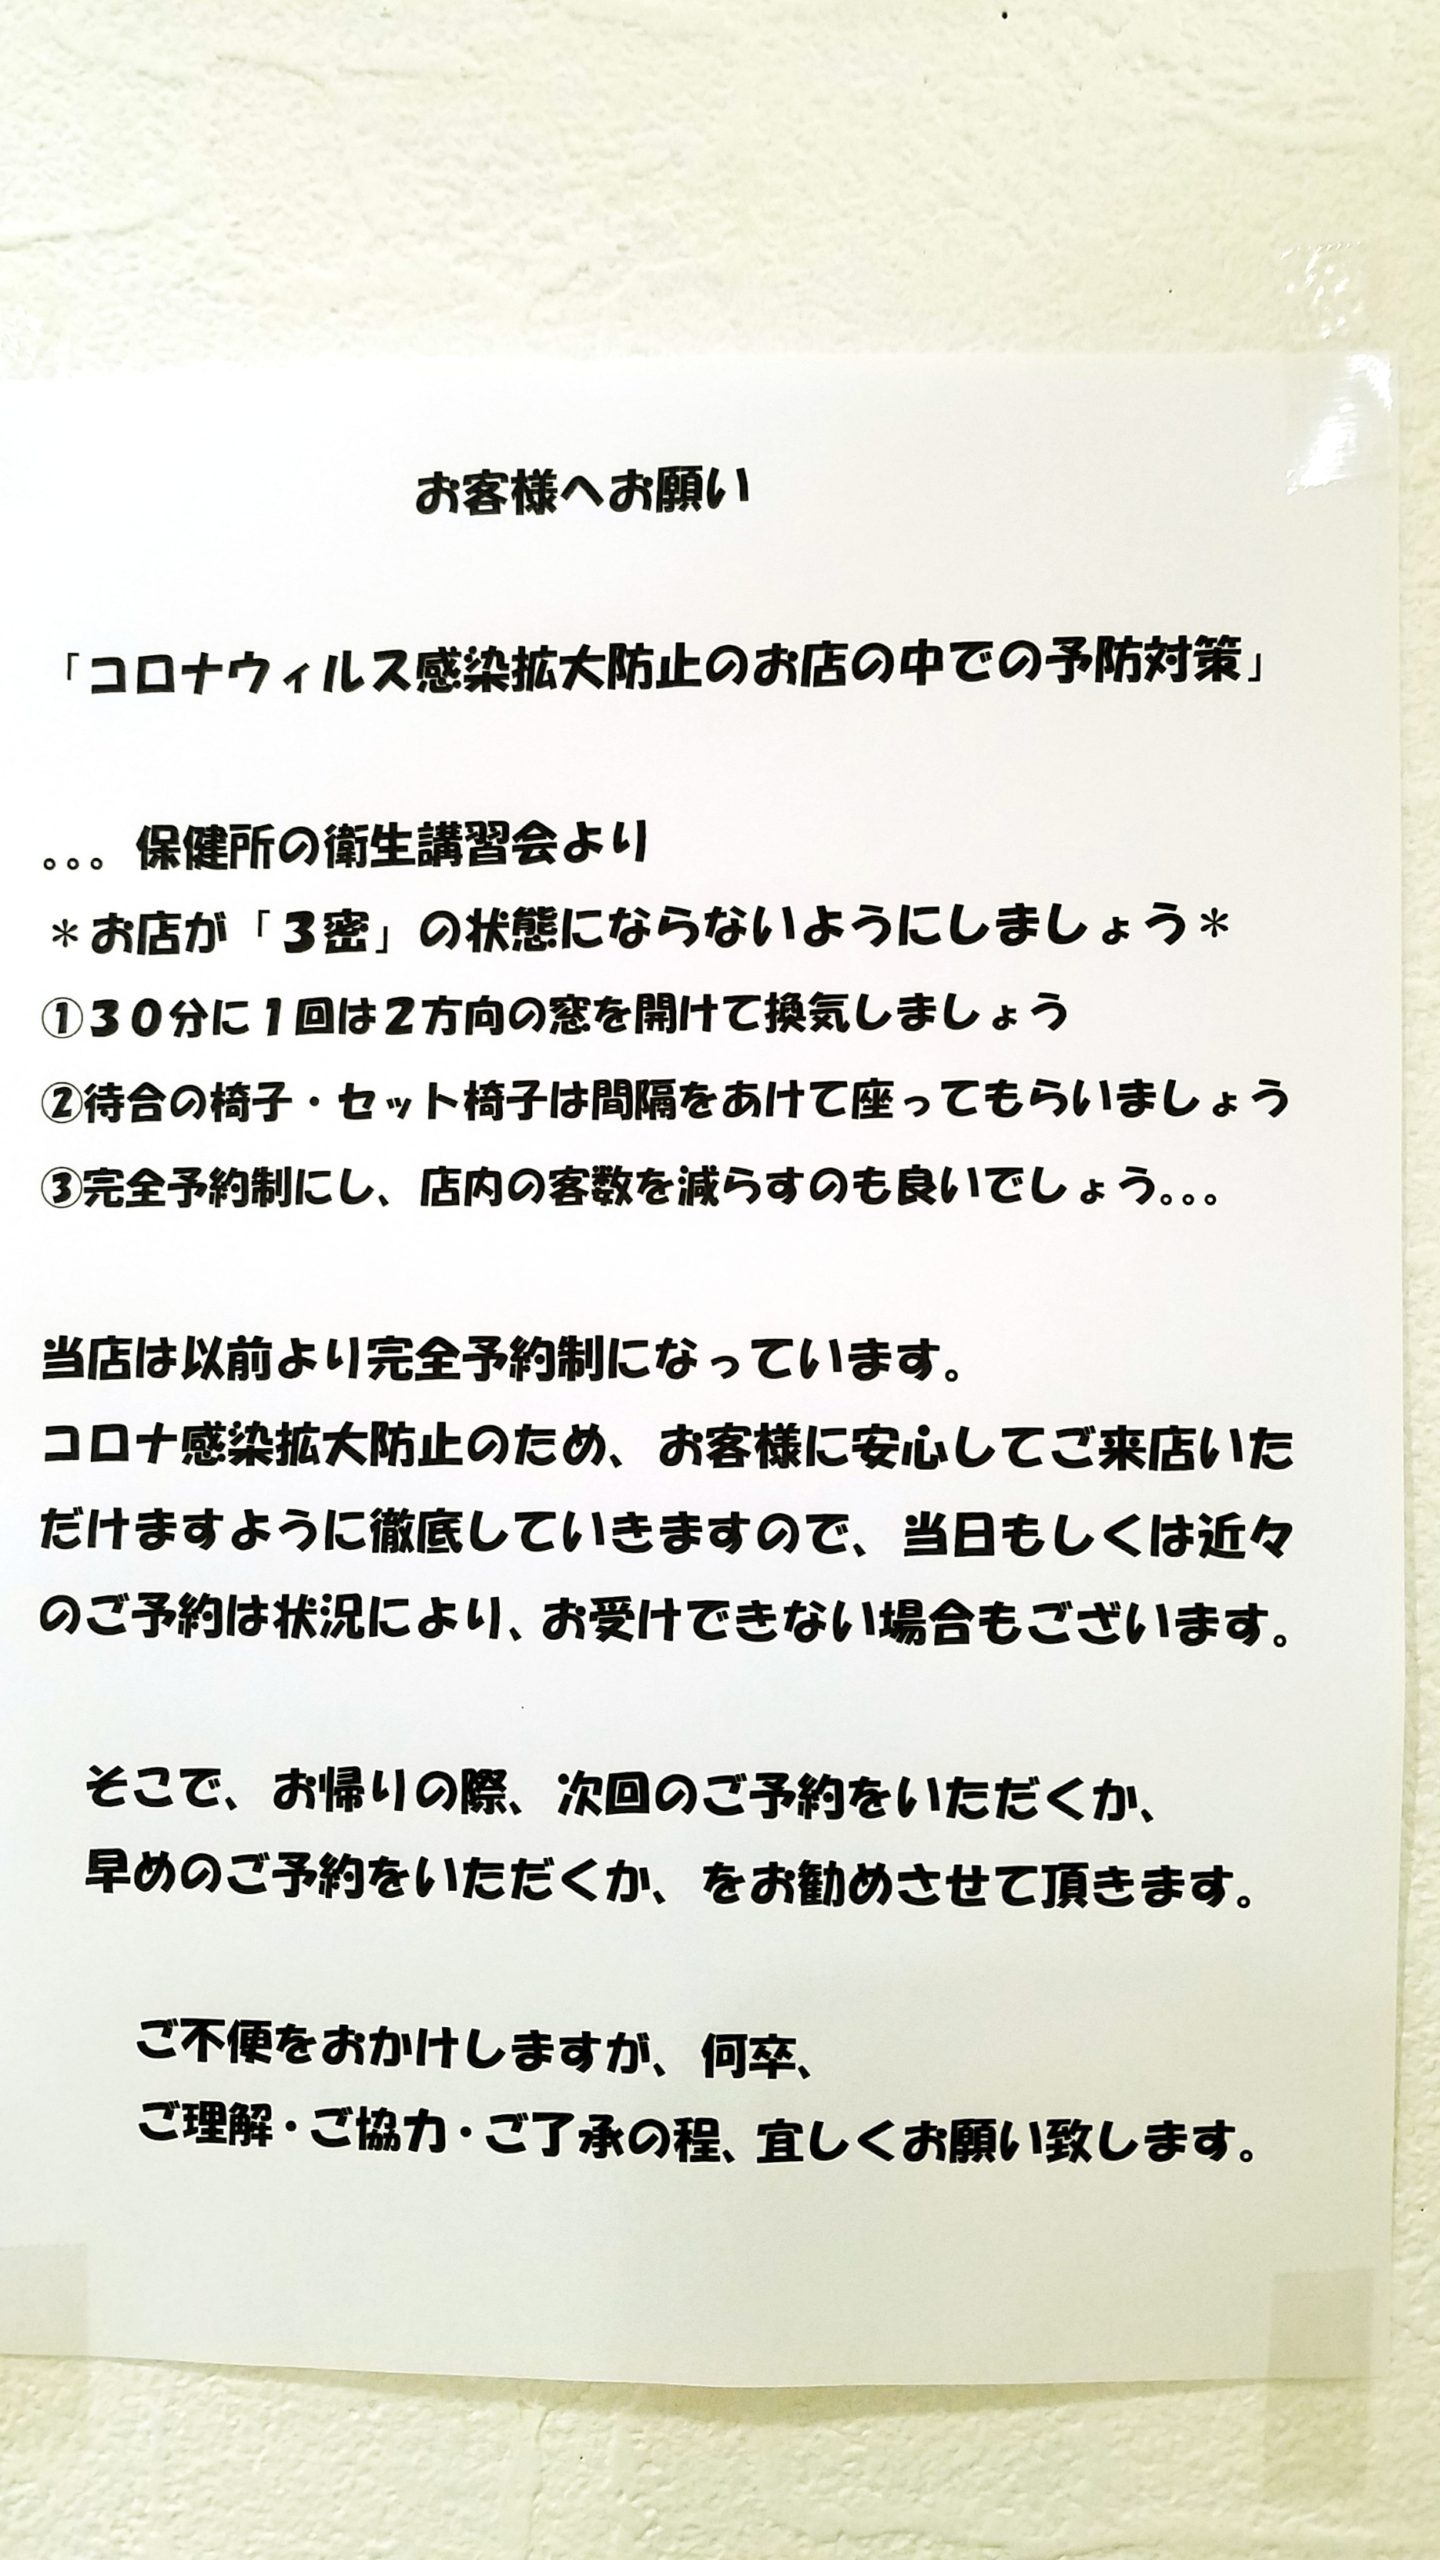 お客様へお願い
「コロナウィルス感染拡大防止のお店の中での予防対策」
。。。保健所の衛生講習会より
＊お店が「３密」の状態にならないようにしましょう＊
①３０分に１回は２方向の窓を開けて換気しましょう
②待合の椅子・セット椅子は間隔をあけて座ってもらいましょう
③完全予約制にし、店内の客数を減らすのも良いでしょう。。。
当店は以前より完全予約制になっています。
コロナ感染拡大防止のため、お客様に安心してご来店いた
だけますように徹底していきますので、当日もしくは近々
のご予約は状況により、お受けできない場合もございます。
そこで、お帰りの際、次回のご予約をいただくか、
早めのご予約をいただくか、をお勧めさせて頂きます。
ご不便をおかけしますが、何卒、
ご理解・ご協力・ご了承の程、宜しくお願い致します。